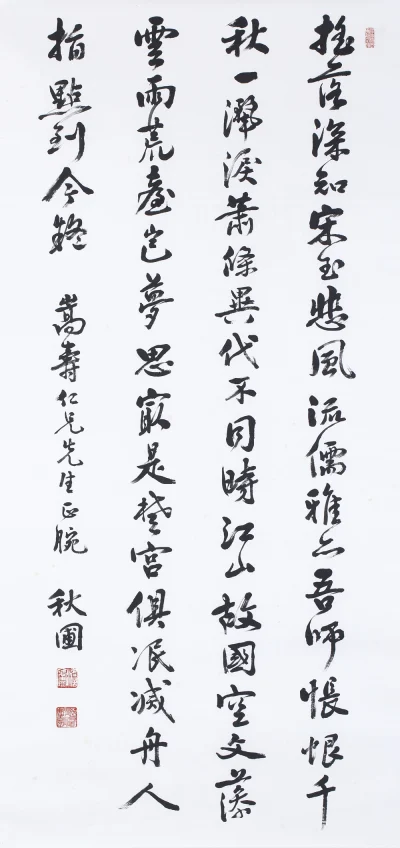 搖落深知宋玉悲風流儒雅亦吾師悵恨千
秋一灑淚蕭條異代不同時江山故國空文藻
雲雨荒臺豈夢思㝡是楚宮俱泯滅舟人
指點到今疑 嵩壽仁兄先生正腕 秋圃